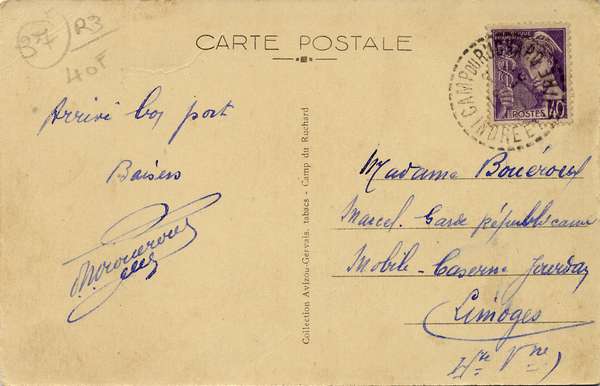 37
R3
40F
CARTE POSTALE
CAMP DU RUCHARD
INDRE ET
POSTES 40
Arrivé bon port
Baisers
Collection Avizou-Gervais, tabacs - Camp du Ruchard
Madame
Marcel. Garde républicaine
Mobile - Caserne Jourdan
Limoges
Hte Vne